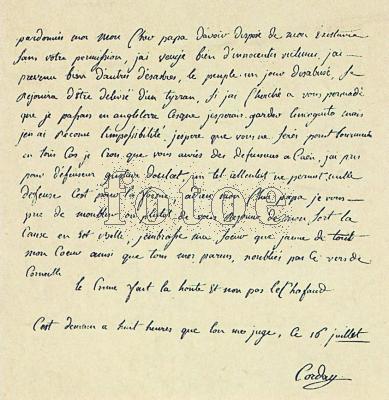 pardonnés moi mon Cher papa davoir disposé de mon existance
sans votre permission, jai vengé bien d'innocentes victimes, jai
prevenu bien dautres désastres, le peuple un jour desabusé, se
rejouira dêtre delivré dun tyrran, Si jai Cherché a vous persuadé
que je passais en angleterre cesque jesperais garder lincognito mais
jen ai reconu limpossibilité. jespere que vous ne serés point tourmenté
en tous Cas je Crois que vous auriés des defenseurs a Caen, jai pris
pour défenseur gustave doulcet, un tel attentat ne permet nulle
défense Cest pour la forme, adieu mon Cher papa je vous
prie de moublier ou plutot de vous rejouir de mon sort la
Cause en est belle, jembrasse ma soeur que jaime de tout
mon Coeur ainsi que tous mes parens, noubliés pas Ce vers de
Corneille
le Crime fait la honte et non pas lechafaud
Cest demain a huit heures que lon me juge, Ce 16 juillet
Corday